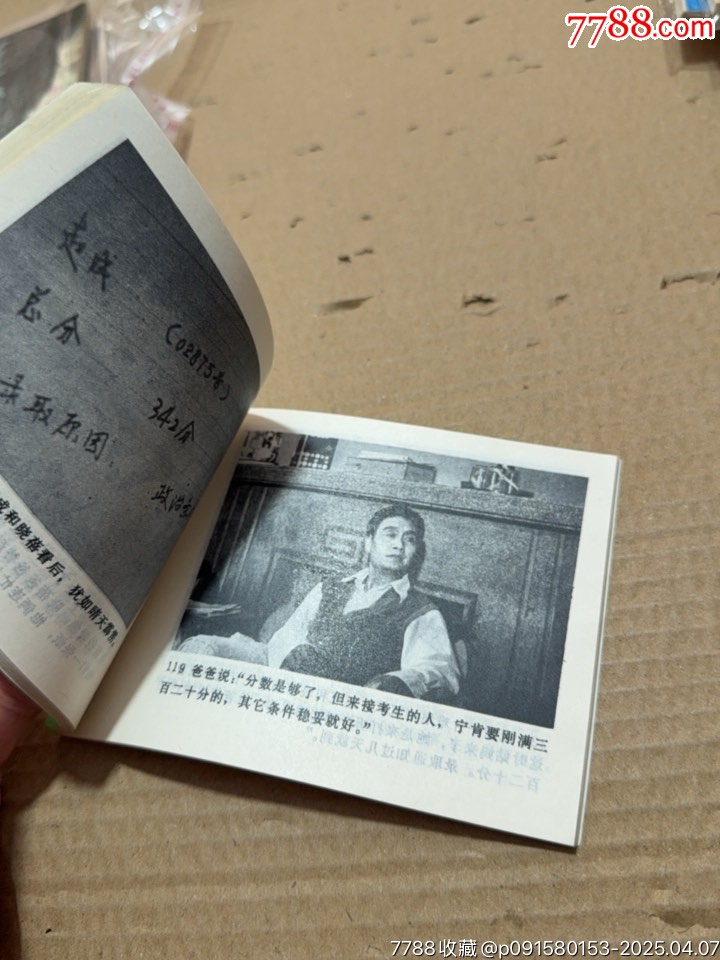 7788.com
志成
(02875号)
总分
342分
录取原因:
政治
成和晓蓓看后,犹如晴天霹雳
119 爸爸说:“分数是够了,但来接考生的人,宁肯要刚满三
百二十分的,其它条件稳妥就好。”
7788收藏@p091580153-2025.04.07